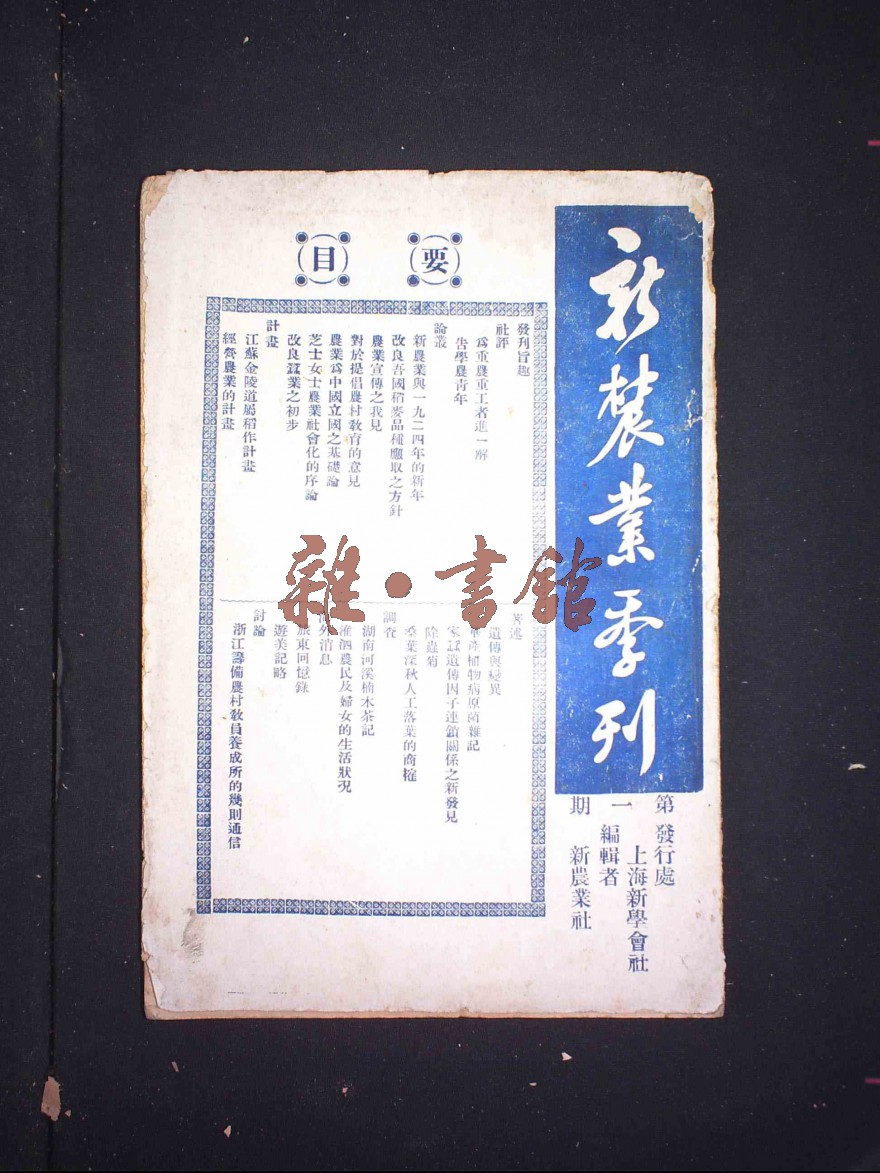 新農業季刊
第一期
發行處
上海新學會社
編輯者
新農業社
要目
發刊旨趣
社評
為重農重工者進一解
告學農青年
論叢
新農業與一九二四年的新年
改良吾國稻麥品種應取之方針
農業宣傳之我見
對於提倡農村教育的意見
農業為中國立國之基礎論
芝士女士農業社會化的序論
改良蠶業之初步
計畫
江蘇金陵道屬稻作計畫
經營農業的計畫
著述
遺傳與變異
產植物病原菌雜記
家蠶遺傳因子連鎖關係之新發見
除蟲菊
桑葉深秋人工落葉的商榷
調查
湖南河溪楠木茶記
淮泗農民及婦女的生活狀況
外消息
旅東回憶錄
遊美記略
討論
浙江籌備農村教員養成所的幾則通信
雜·書館